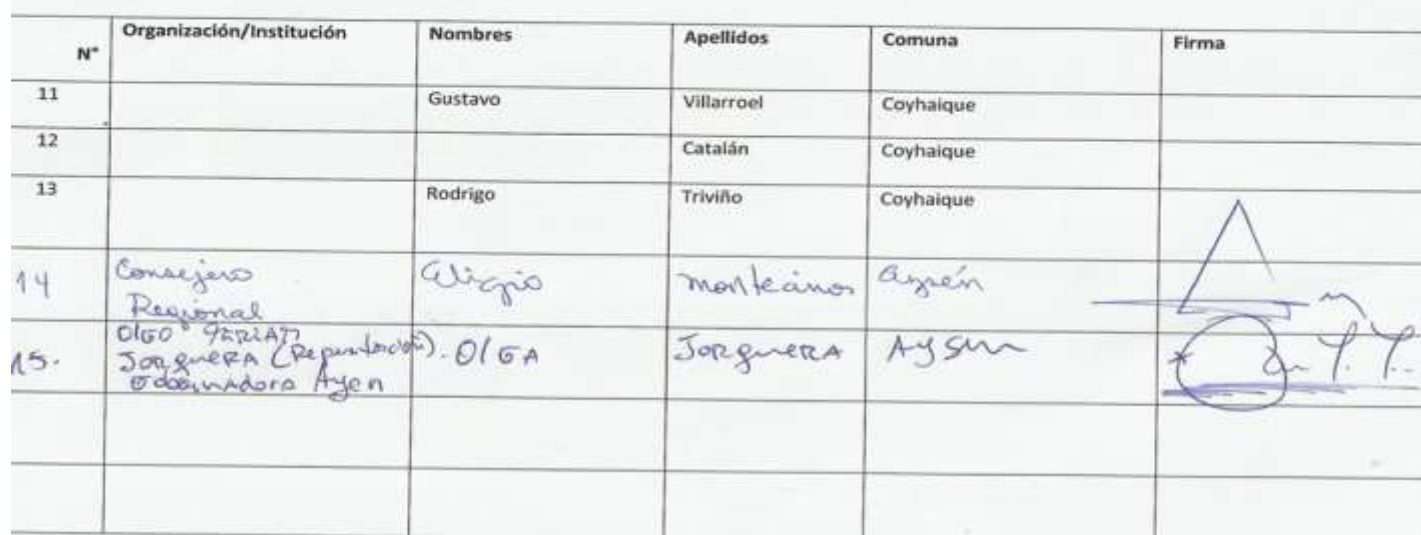 N° Organización/Institución Nombres Apellidos Comuna Firma
11 Gustavo Villarroel Coyhaique
12 Catalán Coyhaique
13 Rodrigo Triviño Coyhaique
14 Consejero Regional Eligio Montecinos Aysén
15. Jorquera Ayen OlGA JorquerA